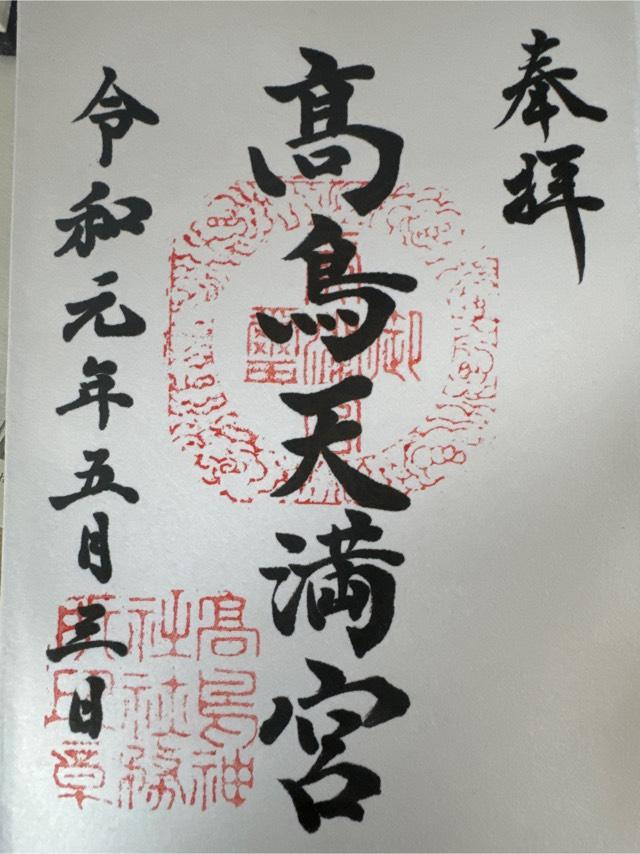 奉拝
髙鳥天満宮
令和元年五月三日
髙鳥神
社社務
所印章